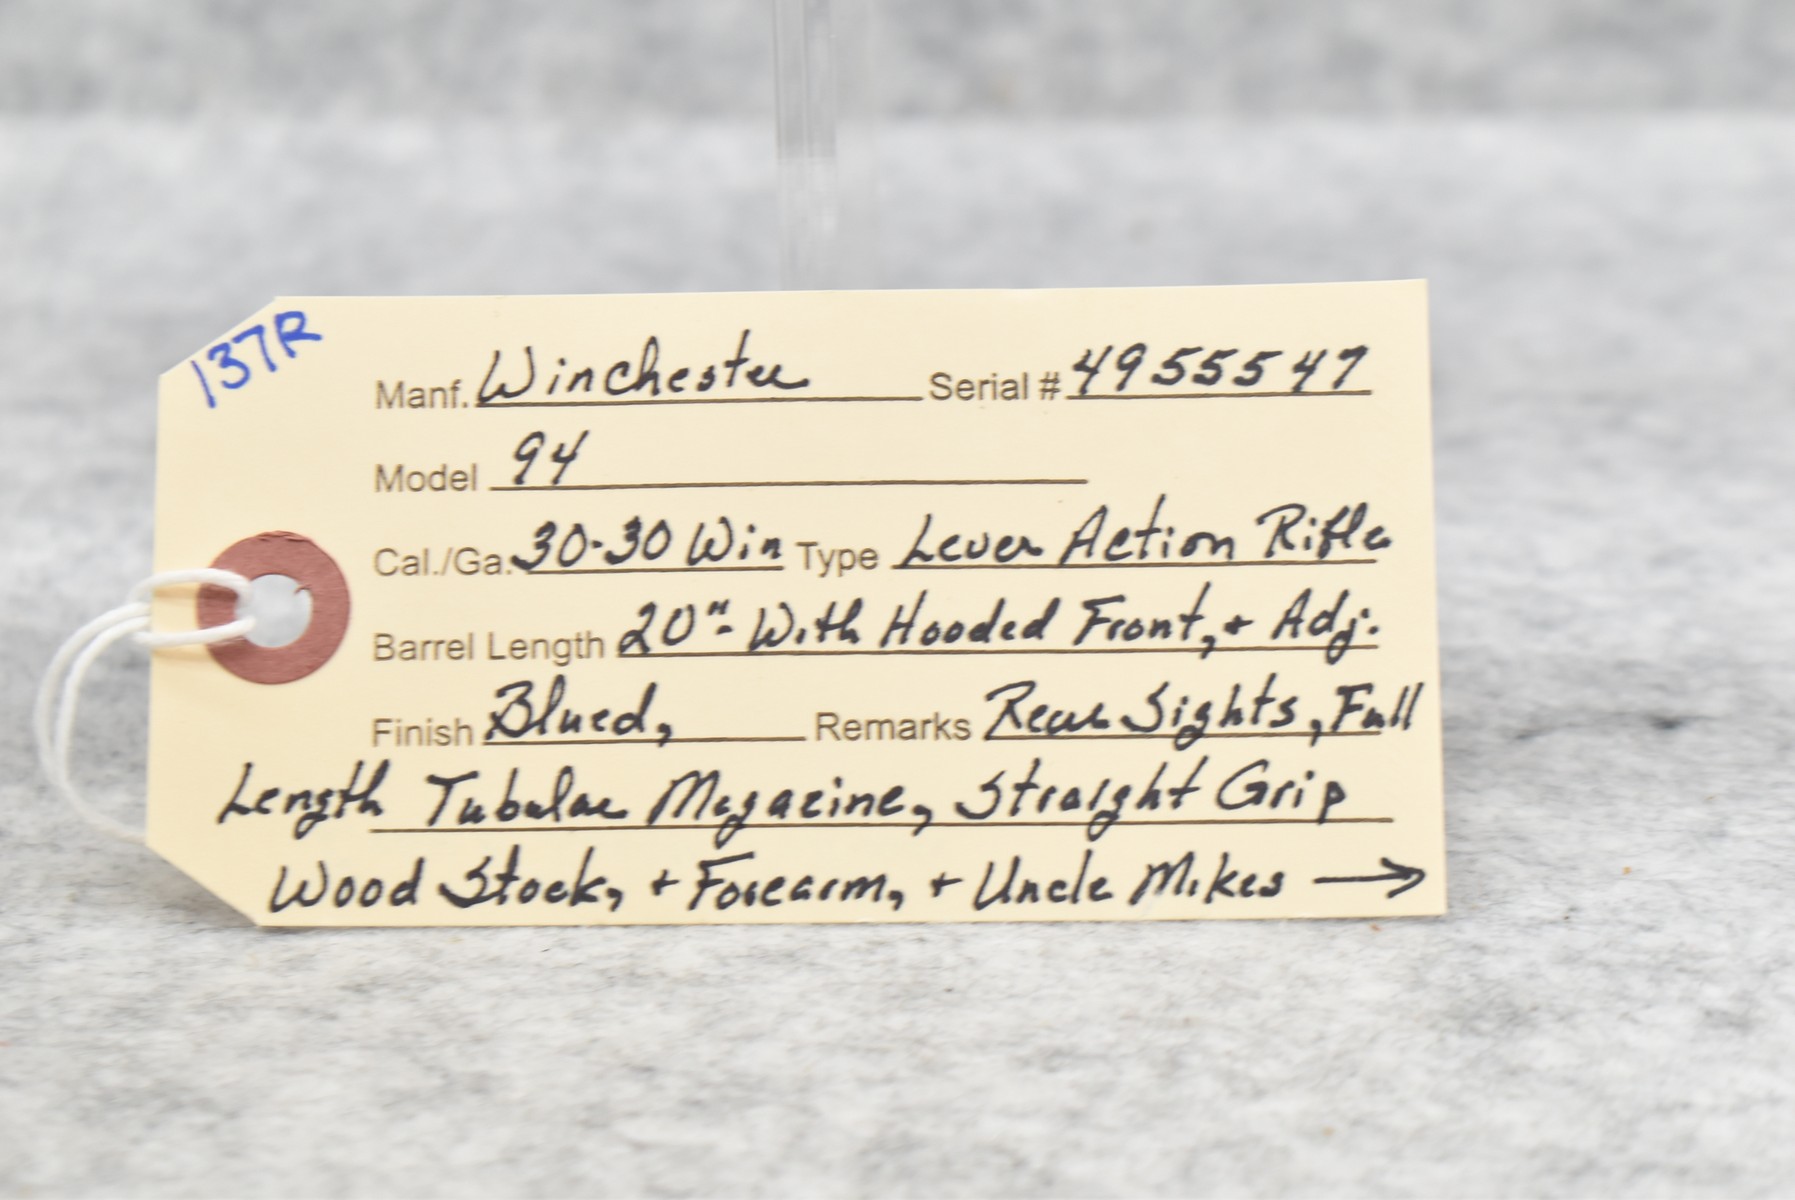 137R
Manf. Winchester Serial # 4955547
Model 94
Cal./Ga. 30-30 Win Type Lever Action Rifle
Barrel Length 20"- With Hooded Front, + Adj.
Finish Blued, Remarks Rear Sights, Full
Length Tubular Magazine, Straight Grip
Wood Stock, + Forearm, + Uncle Mikes →